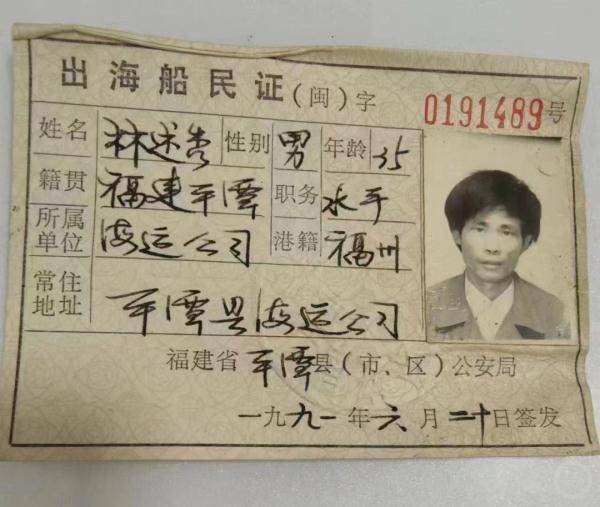 出海船民证(闽)字 0191489号
姓名 林述秀 性别 男 年龄 35
籍贯 福建平潭 职务 水手
所属单位 海运公司 港籍 福州
常住地址 平潭县海运公司
福建省平潭县(市、区)公安局
一九九一年六月二十日签发